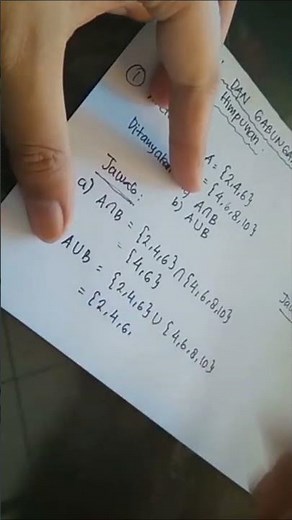 DAN GABUNGA
Himpunan
①
A = {2,4,6}
= {4,6,8,10}
Ditanyakan
A∩B
b) A∪B
Jawab:
a) A∩B = {2,4,6}∩{4,6,8,10}
= {4,6}
A∪B = {2,4,6}∪{4,6,8,10}
= {2,4,6,